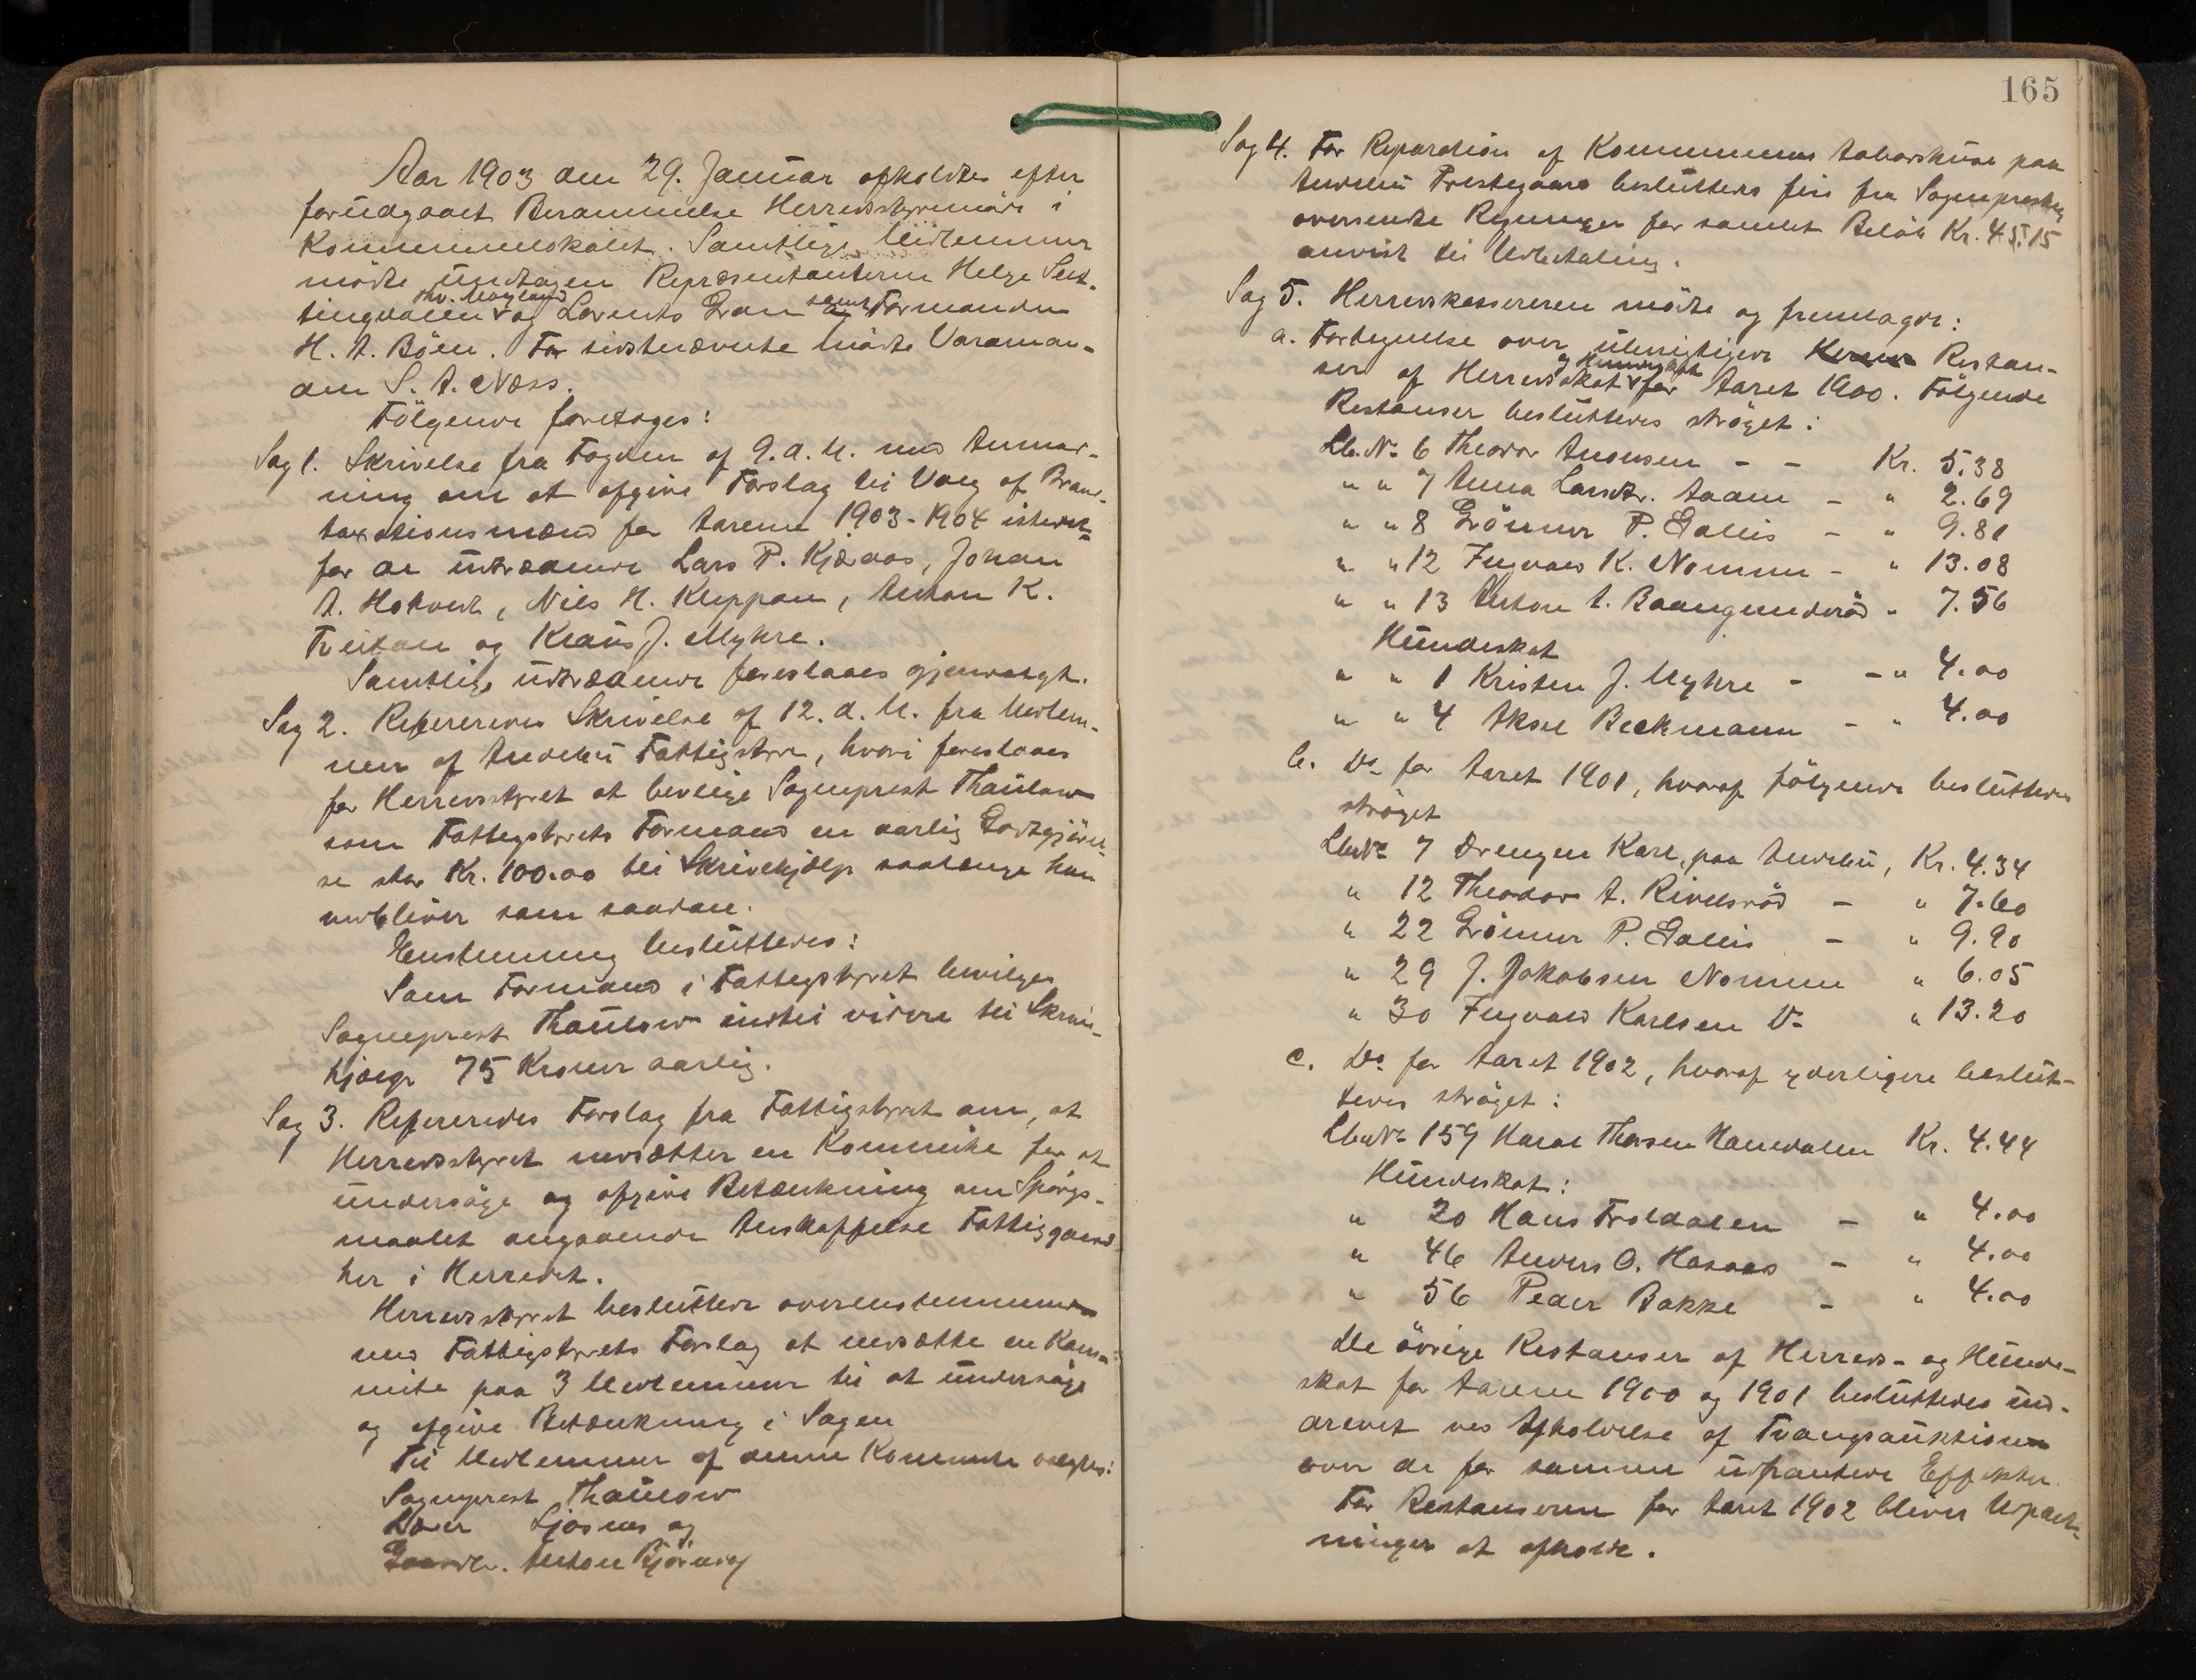 Aar 1903 den 29. Januar afholdtes efter
forudgaaet Berammelse Herredsstyremöde i
Kommunelokalet. Samtlige Medlemmer
mödte undtagen Repræsentanterne Helge Sut-
Chr. Møyland samt
tingdalen og Lorents Gran og Formanden
H. A. Böen. For sidstnævnte mödte Varaman-
den S. A. Næss.
Fölgende foretoges:
Sag 1. Skrivelse fra Fogden af 9. d. M. med Anmod-
ning om at afgive Forslag til Valg af Brand-
taxationsmænd for Aarene 1903-1904 istedet-
for de udtrædende Lars P. Kjæraas, Johan
A. Hotvedt, Nils H. Kleppan, Anton K.
Trevtan og Klaus J. Myhre.
Samtlige udtrædende foreslaaes gjenvalgt.
Sag 2. Refereredes Skrivelse af 12. d. M. fra Medlem-
mer af Andebu Fattigstyre, hvori foreslaaes
for Herredsstyret at bevilge Sogneprest Thaulow
som Fattigstyrets Formand en aarlig Godtgjörel-
se stor Kr. 100.00 til Skrivehjælp saalænge han
vedbliver som saadan.
Enstemmig besluttedes:
Som Formand i Fattigstyret bevilges
Sogneprest Thaulow indtil videre til Skrive-
hjælp 75 Kroner aarlig.
Sag 3. Refereredes Forslag fra Fattigstyret om, at
Herredsstyret nedsætter en Kommite for at
undersöge og afgive Betænkning om Spörgs-
maalet angaaende Anskaffelse Fattiggaard
her i Herredet.
Herredsstyret besluttede overensstemmende
med Fattigstyrets Forslag at nedsætte en Kom-
mite paa 3 Medlemmer til at undersöge
og afgive Betænkning i Sagen
Til Medlemmer af denne Kommite valgtes:
Sogneprest Thaulow
Lærer Ljosnes og
Gaardb. Anton Bjørndal
165
Sag 4. For Reparation af Kommunens Aaboshuse paa
Andebu Prestegaard besluttedes fire fra Sognepresten
oversendte Regninger for samlet Beløb Kr. 45.15
anvist til Udbetaling.
Sag 5. Herredskassereren mödte og fremlagde:
a. Fortegnelse over uberigtigede Restan-
og Hundeskat
ser af Herredsskat for Aaret 1900. Fölgende
Restanser besluttedes ströget:
Lb. No 6 Theodor Anonsen - - Kr. 5.38
" " 7 Anna Larsdtr. Aadne - " 2.69
" " 8 Grönner P. Gallis - " 9.81
" " 12 Ingvald K. Nommen - " 13.08
" " 13 Anton A. Baangunderöd " 7.56
Hundeskat
" " 1 Kristen J. Myhre - - " 4.00
" " 4 Aksel Beckmann - " 4.00
b. Do for Aaret 1901, hvoraf fölgende besluttedes
ströget
Lbno 7 Drengen Karl, paa Andebu, Kr. 4.34
" 12 Theodor A. Rivelsröd - " 7.60
" 22 Grönner P. Gallis - " 9.90
" 29 J. Jakobsen Nommen " 6.05
" 30 Ingvald Karlsen Do " 13.20
c. Do for Aaret 1902, hvoraf yderligere beslut-
tedes ströget:
Lbno 159 Harald Thorsen Hanedalen Kr. 4.44
Hundeskat:
" 20 Hans Troldalen - " 4.00
" 46 Anders O. Hasaas - " 4.00
" 56 Peder Bakke - " 4.00
De övrige Restanser af Herreds- og Hunde-
skat for Aarene 1900 og 1901 besluttedes ind-
drevet ved Afholdelse af Tvangsauktioner
over de for samme udpantede Effekter.
For Restanserne for Aaret 1902 bliver Udpant-
ninger at afholde.